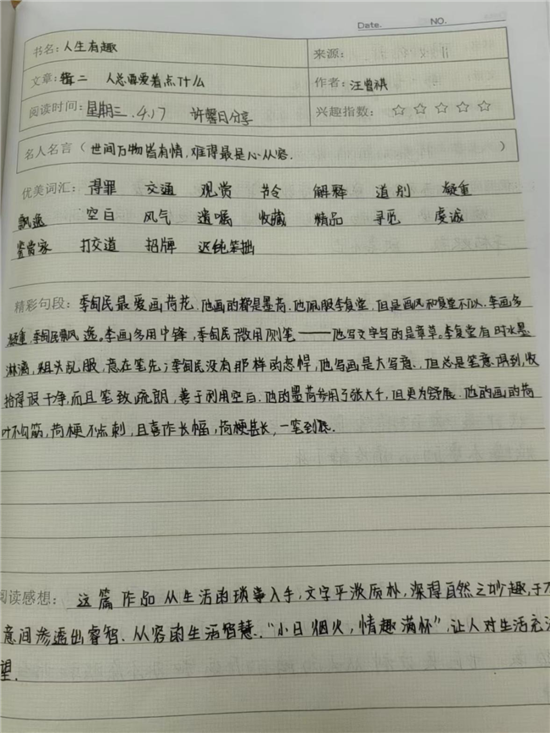 Date. NO.
书名：人生有趣 来源：
文章：辑二 人总要爱着点什么 作者：汪曾祺
阅读时间：星期三 4.17 许馨日分享 兴趣指数：☆ ☆ ☆ ☆ ☆
名人名言（世间万物皆有情，难得最是心从容. ）
优美词汇：得罪 交通 观赏 节令 解释 道别 凝重
飘逸 空白 风气 遗嘱 收藏 精品 寻觅 虔诚
鉴赏家 打交道 招牌 迟钝笨拙
精彩句段：李匋民最爱画荷花. 他画的都是墨荷. 他佩服李复堂. 但是画风和复堂不似. 李画多
凝重 李匋民飘逸. 李画多用中锋，季匋民微用侧笔——他写文字写的是章草. 李复堂有时水墨
淋漓，粗头乱服，意在笔先；季匋民没有那样的恣悍，他写画是大写意. 但总是笔意俱到，收
拾得很干净，而且笔致疏朗，善于利用空白. 他的墨荷参用了张大千，但更为舒展. 他的画的荷
叶不勾筋，荷梗不点刺，且喜作长幅，荷梗甚长，一笔到底.
阅读感想： 这篇作品从生活的琐事入手，文字平淡质朴，深得自然之妙趣，于不
意间渗透出睿智. 从容的生活智慧. “小日烟火，情趣满怀”，让人对生活充满
望.